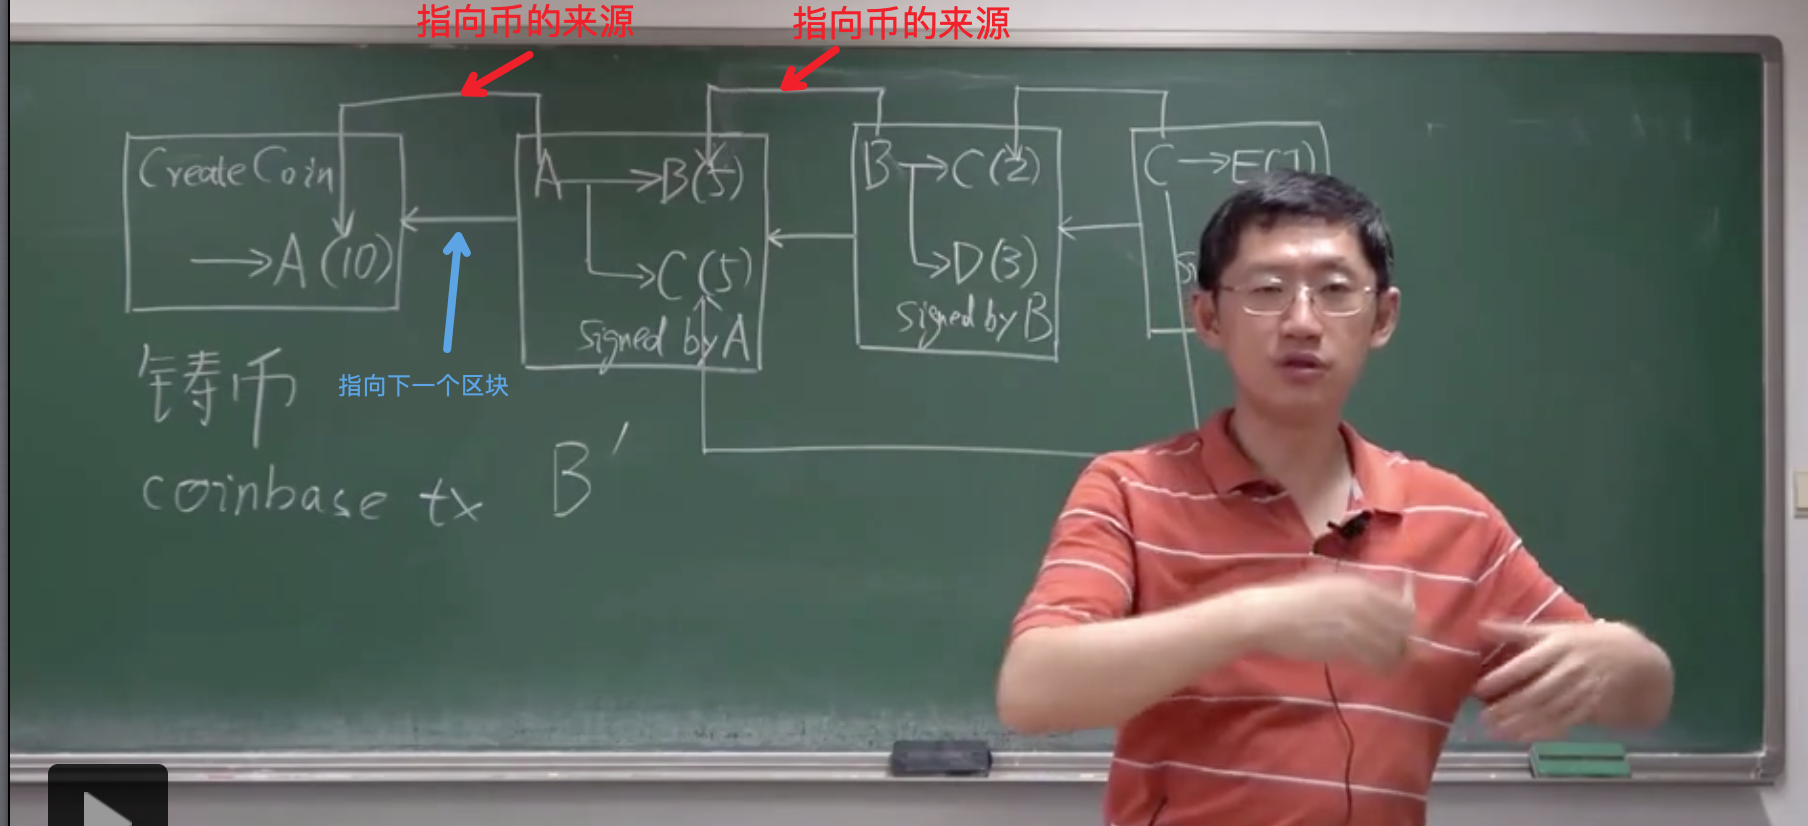 指向币的来源 指向币的来源
Create Coin
→A(10)
A→B(5)
→C(5)
signed by A
B→C(2)
→D(3)
signed by B
C→E(7)
指向下一个区块
铸币
coinbase tx
B'